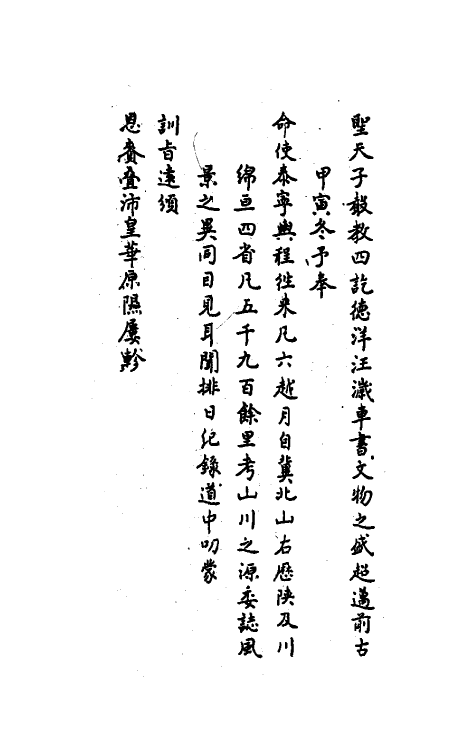 聖天子敷教四訖德洋汪濊車書文物之盛超邁前古
甲寅冬予奉
命使泰寧輿程往來凡六越月自冀北山右歷陝及川
綿亘四省凡五千九百餘里考山川之源委誌風
景之異同目見耳聞排日紀錄道中叨蒙
訓旨遠頒
恩賚疊沛皇華原隰屢